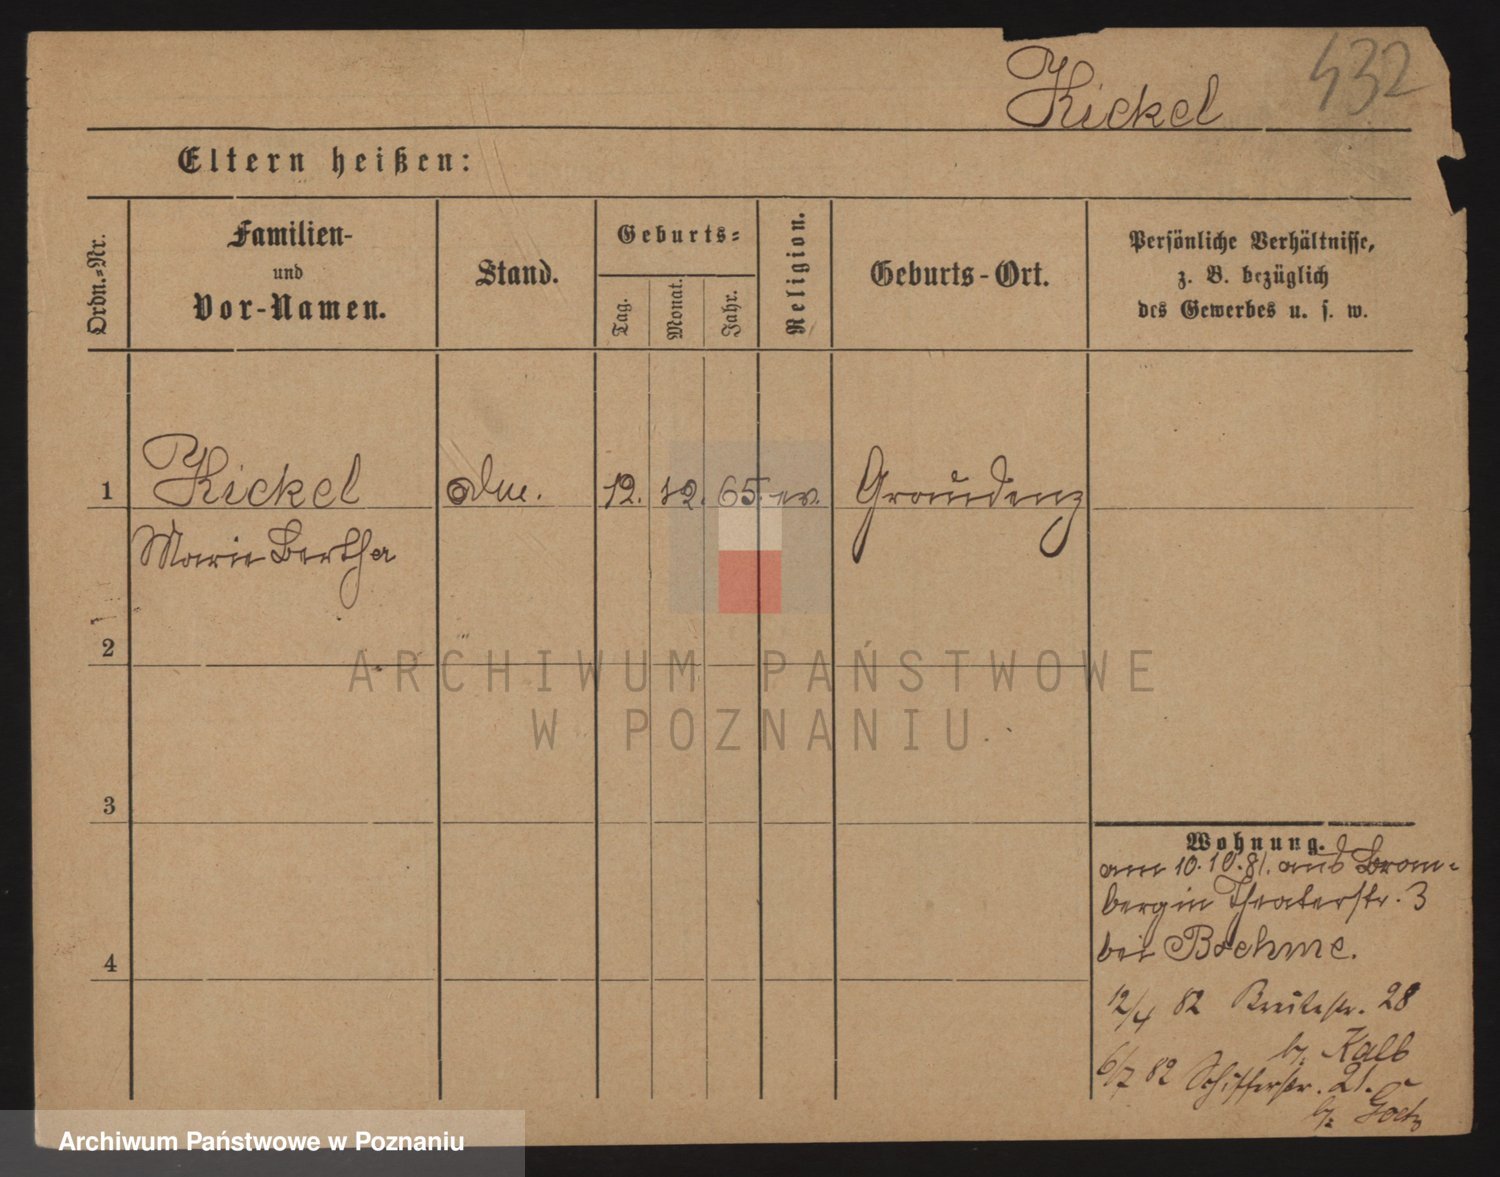 Kickel 432
Eltern heißen:
Ordn.-Nr.
Familien-
und
Vor-Namen.
Stand.
Geburts-
Tag.
Monat.
Jahr.
Religion.
Geburts-Ort.
Persönliche Verhältnisse,
z. B. bezüglich
des Gewerbes u. s. w.
1 Kickel 12. 12. 65. ev. Graudenz
Marie Bertha
2
3
4
Wohnung.
am 10.10.81. aus Brom-
berg in Theaterstr. 3
bei Boehme.
12/4 82 Breitestr. 28
b. Kalb
6/7 82 Schifferstr. 21.
b.
ARCHIWUM PAŃSTWOWE
W POZNANIU
Archiwum Państwowe w Poznaniu